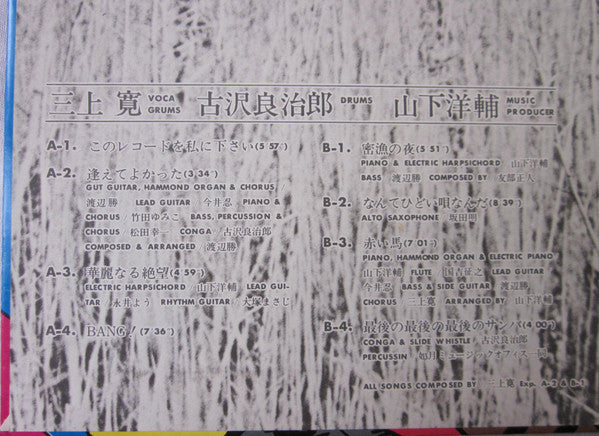 三上 寛 VOCA GRUMS 古沢良治郎 DRUMS 山下洋輔 MUSIC PRODUCER
A-1. このレコードを私に下さい(5 57")
A-2. 逢えてよかった(3,34")
GUT GUITAR, HAMMOND ORGAN & CHORUS/
渡辺勝 LEAD GUITAR/今井忍 PIANO &
CHORUS/竹田ゆみこ BASS, PERCUSSION &
CHORUS/松田幸一 CONGA/古沢良治郎
COMPOSED & ARRANGED/渡辺勝
A-3. 華麗なる絶望(4 59")
ELECTRIC HARPSICHORD/山下洋輔 LEAD GUI-
TAR/永井よう RHYTHM GUITAR/大塚まさじ
A-4. BANG!(7'36")
B-1. 密漁の夜(5 51")
PIANO & ELECTRIC HARPSICHORD/山下洋輔
BASS/渡辺勝 COMPOSED BY/友部正人
B-2. なんてひどい唄なんだ(8 39")
ALTO SAXOPHONE/坂田明
B-3. 赤い馬(7 01")
PIANO, HAMMOND ORGAN & ELECTRIC PIANO
山下洋輔 FLUTE/国吉征之 LEAD GUITAR
今井忍 BASS & SIDE GUITAR/渡辺勝
CHORUS/三上寛 ARRANGED BY/山下洋輔
B-4. 最後の最後の最後のサンバ(4 00")
CONGA & SLIDE WHISTLE/古沢良治郎
PERCUSSIN/如月ミュージックオフィス一同
ALL SONGS COMPOSED BY/三上寛 Exp. A-2 & B-1